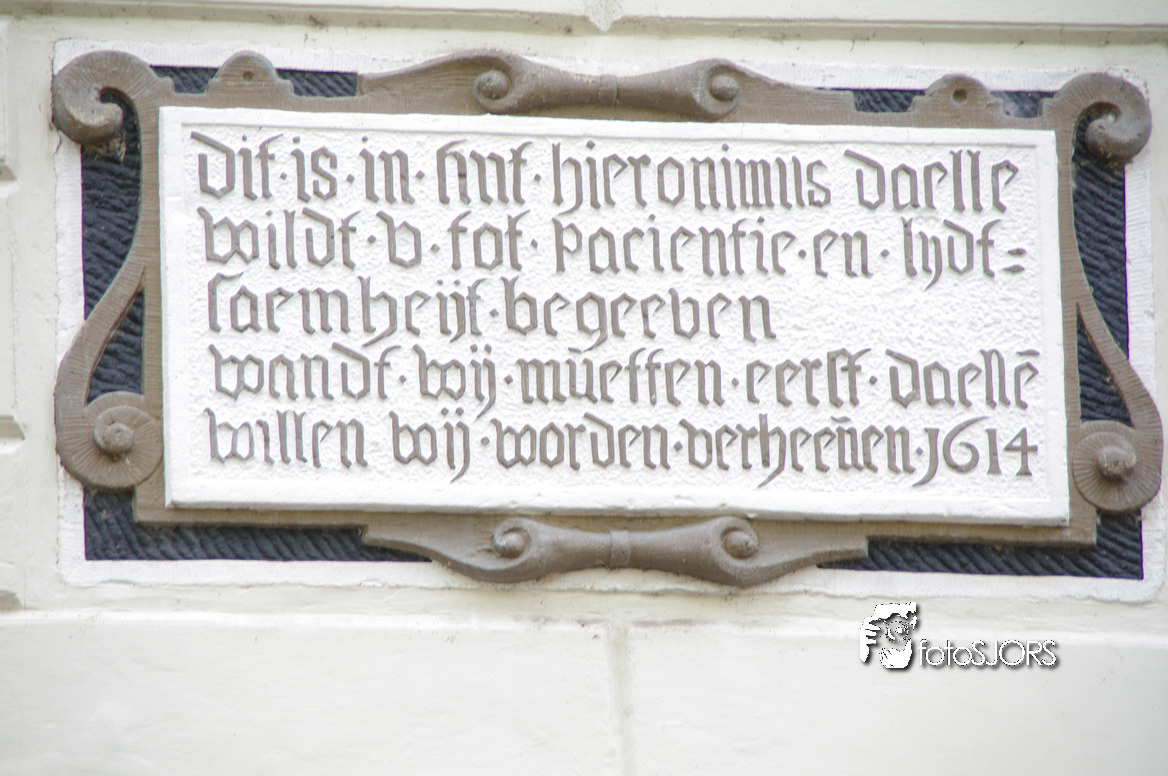 dit·is·in·sint·hieronimus daelle
wildt·v·tot·pacientie·en·lydt=
saemheijt·begeeven
wandt·wij·mūetten·eerst·daellē
willen wij·worden·verheeūen·1614
fotoSJORS